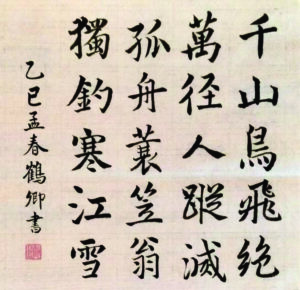 千山鳥飛絕
萬径人蹤滅
孤舟蓑笠翁
獨釣寒江雪
乙巳孟春鶴卿書